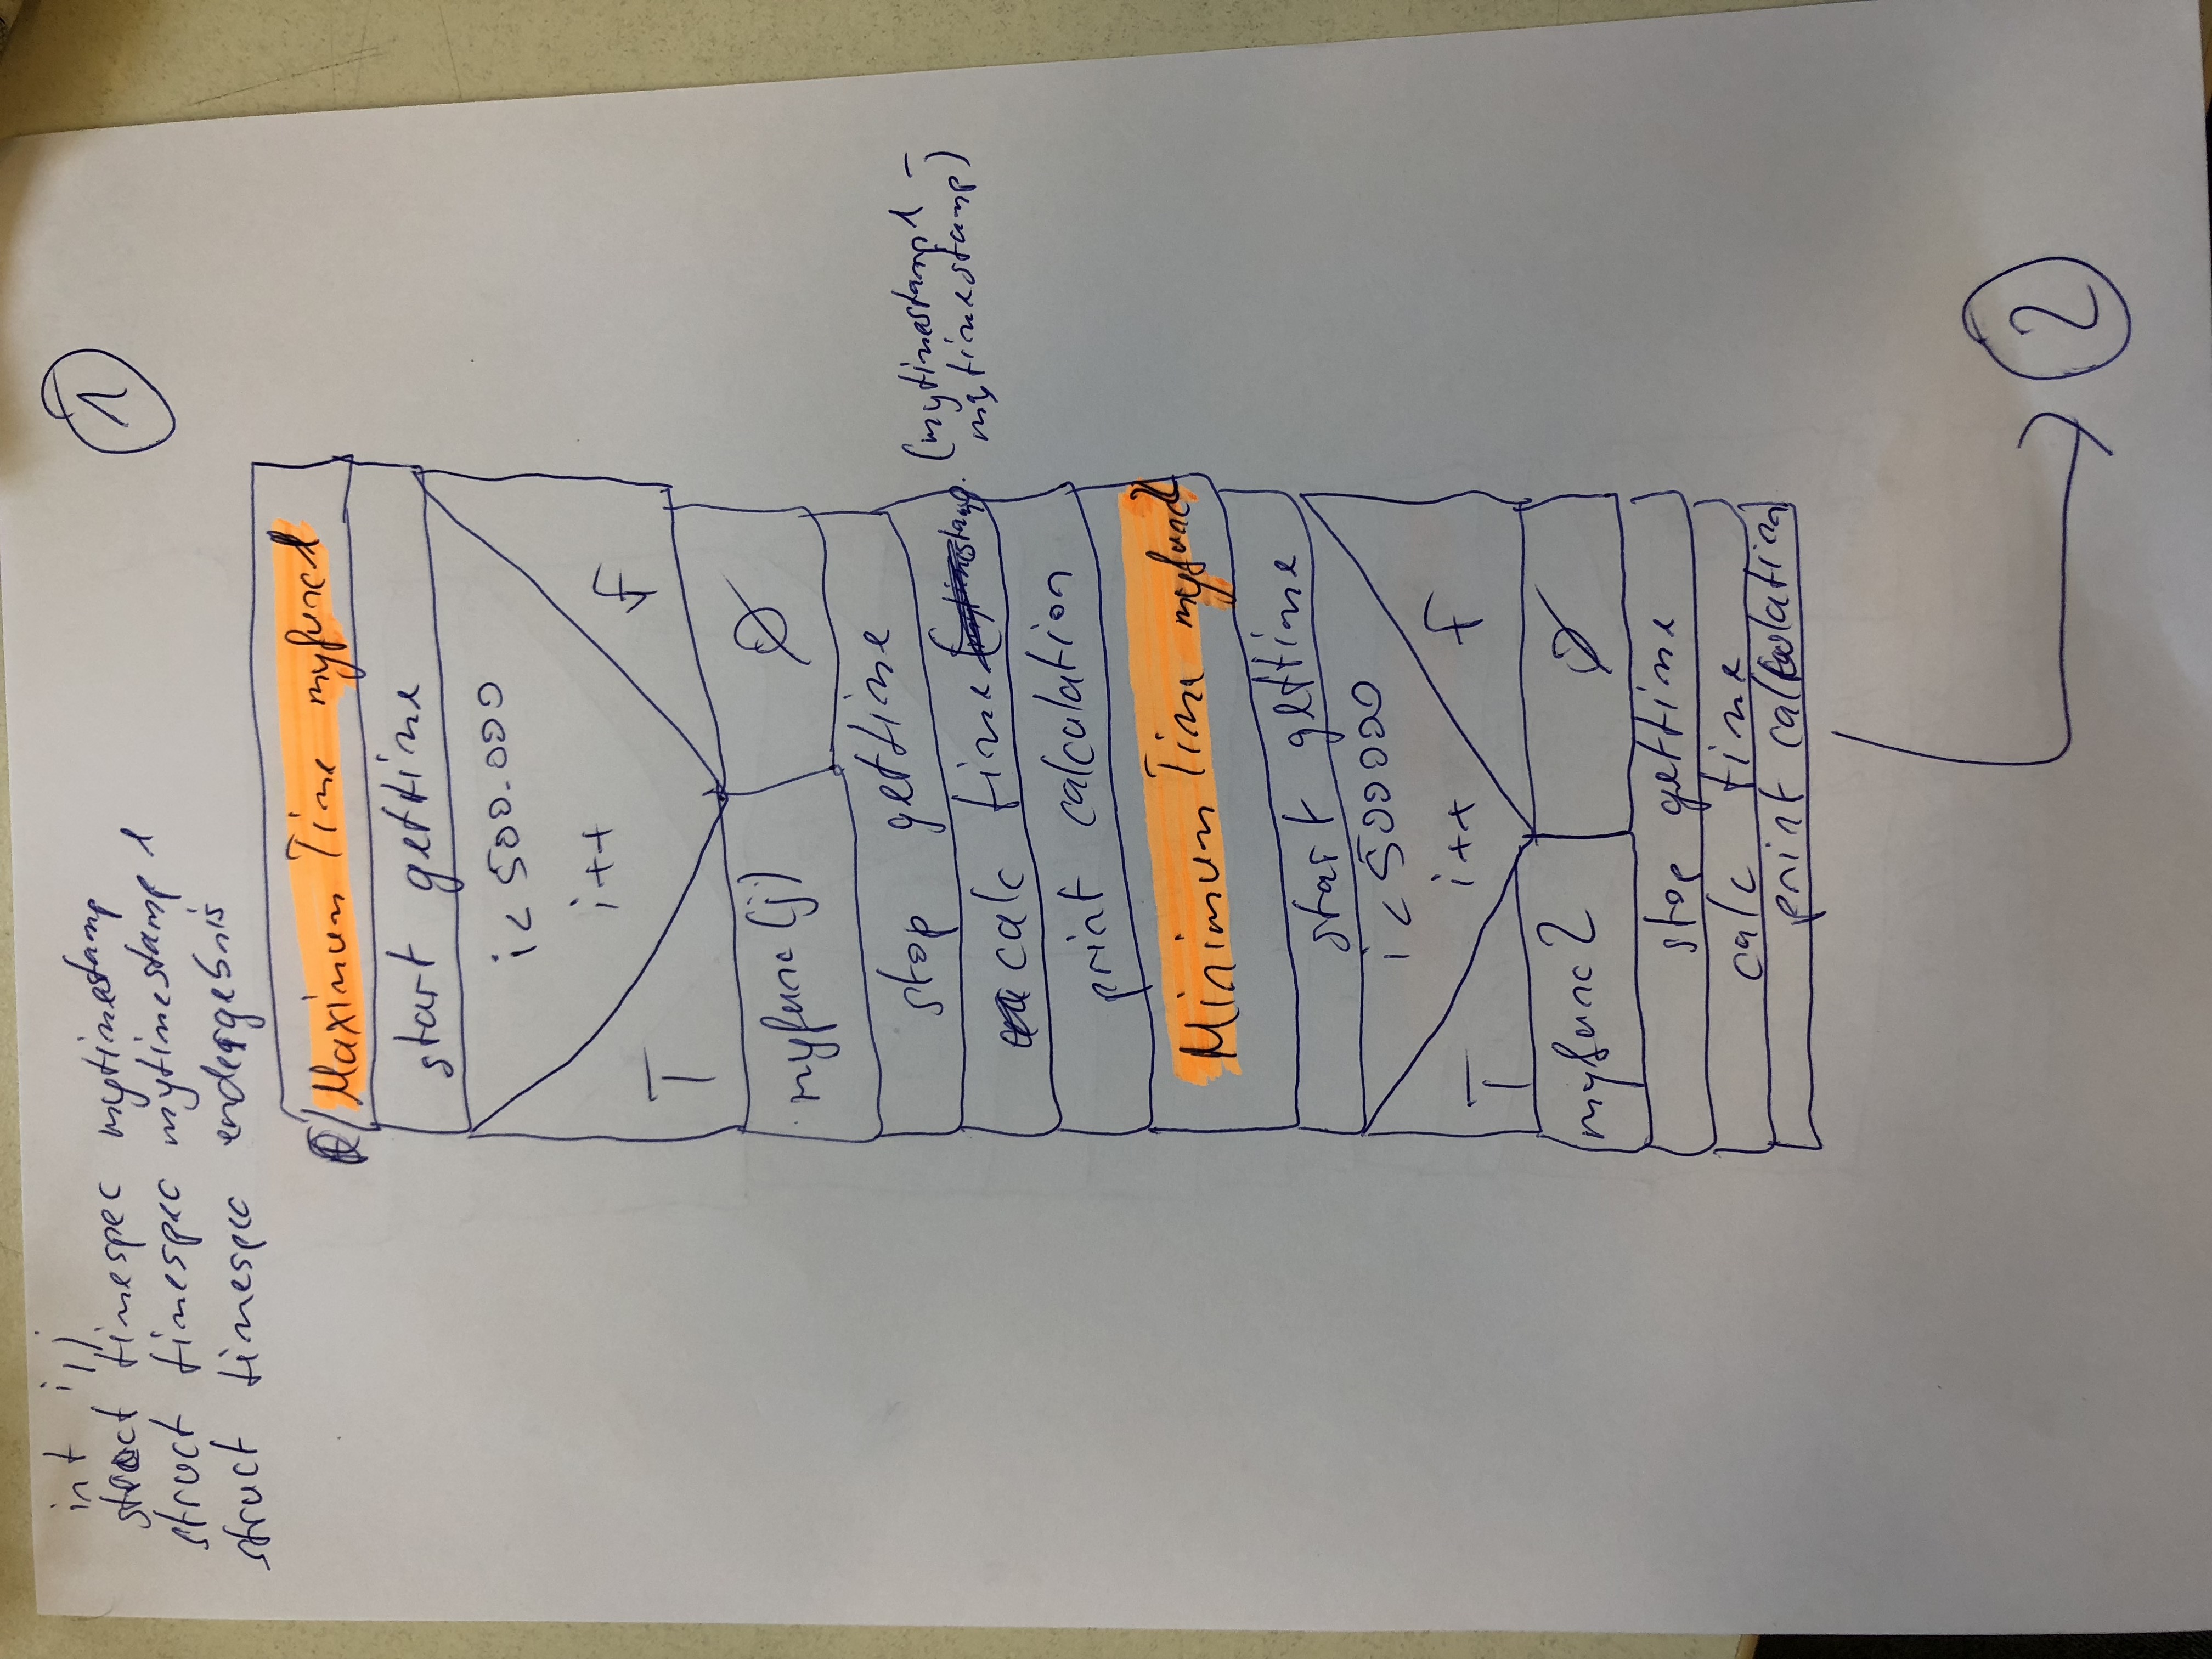 int i,j
1
struct timespec mytimestamp
struct timespec mytimestamp 1
struct timespec endergebnis
Maximum Time myfunc1
start gettime
i < 500.000
i++
T
F
myfunc(j)
Ø
stop gettime
calc time
(mytimestamp1 -
mytimestamp)
print calculation
Minimum Time myfunc2
start gettime
i < 500000
i++
T
F
myfunc2
Ø
stop gettime
calc time
print calculation
2